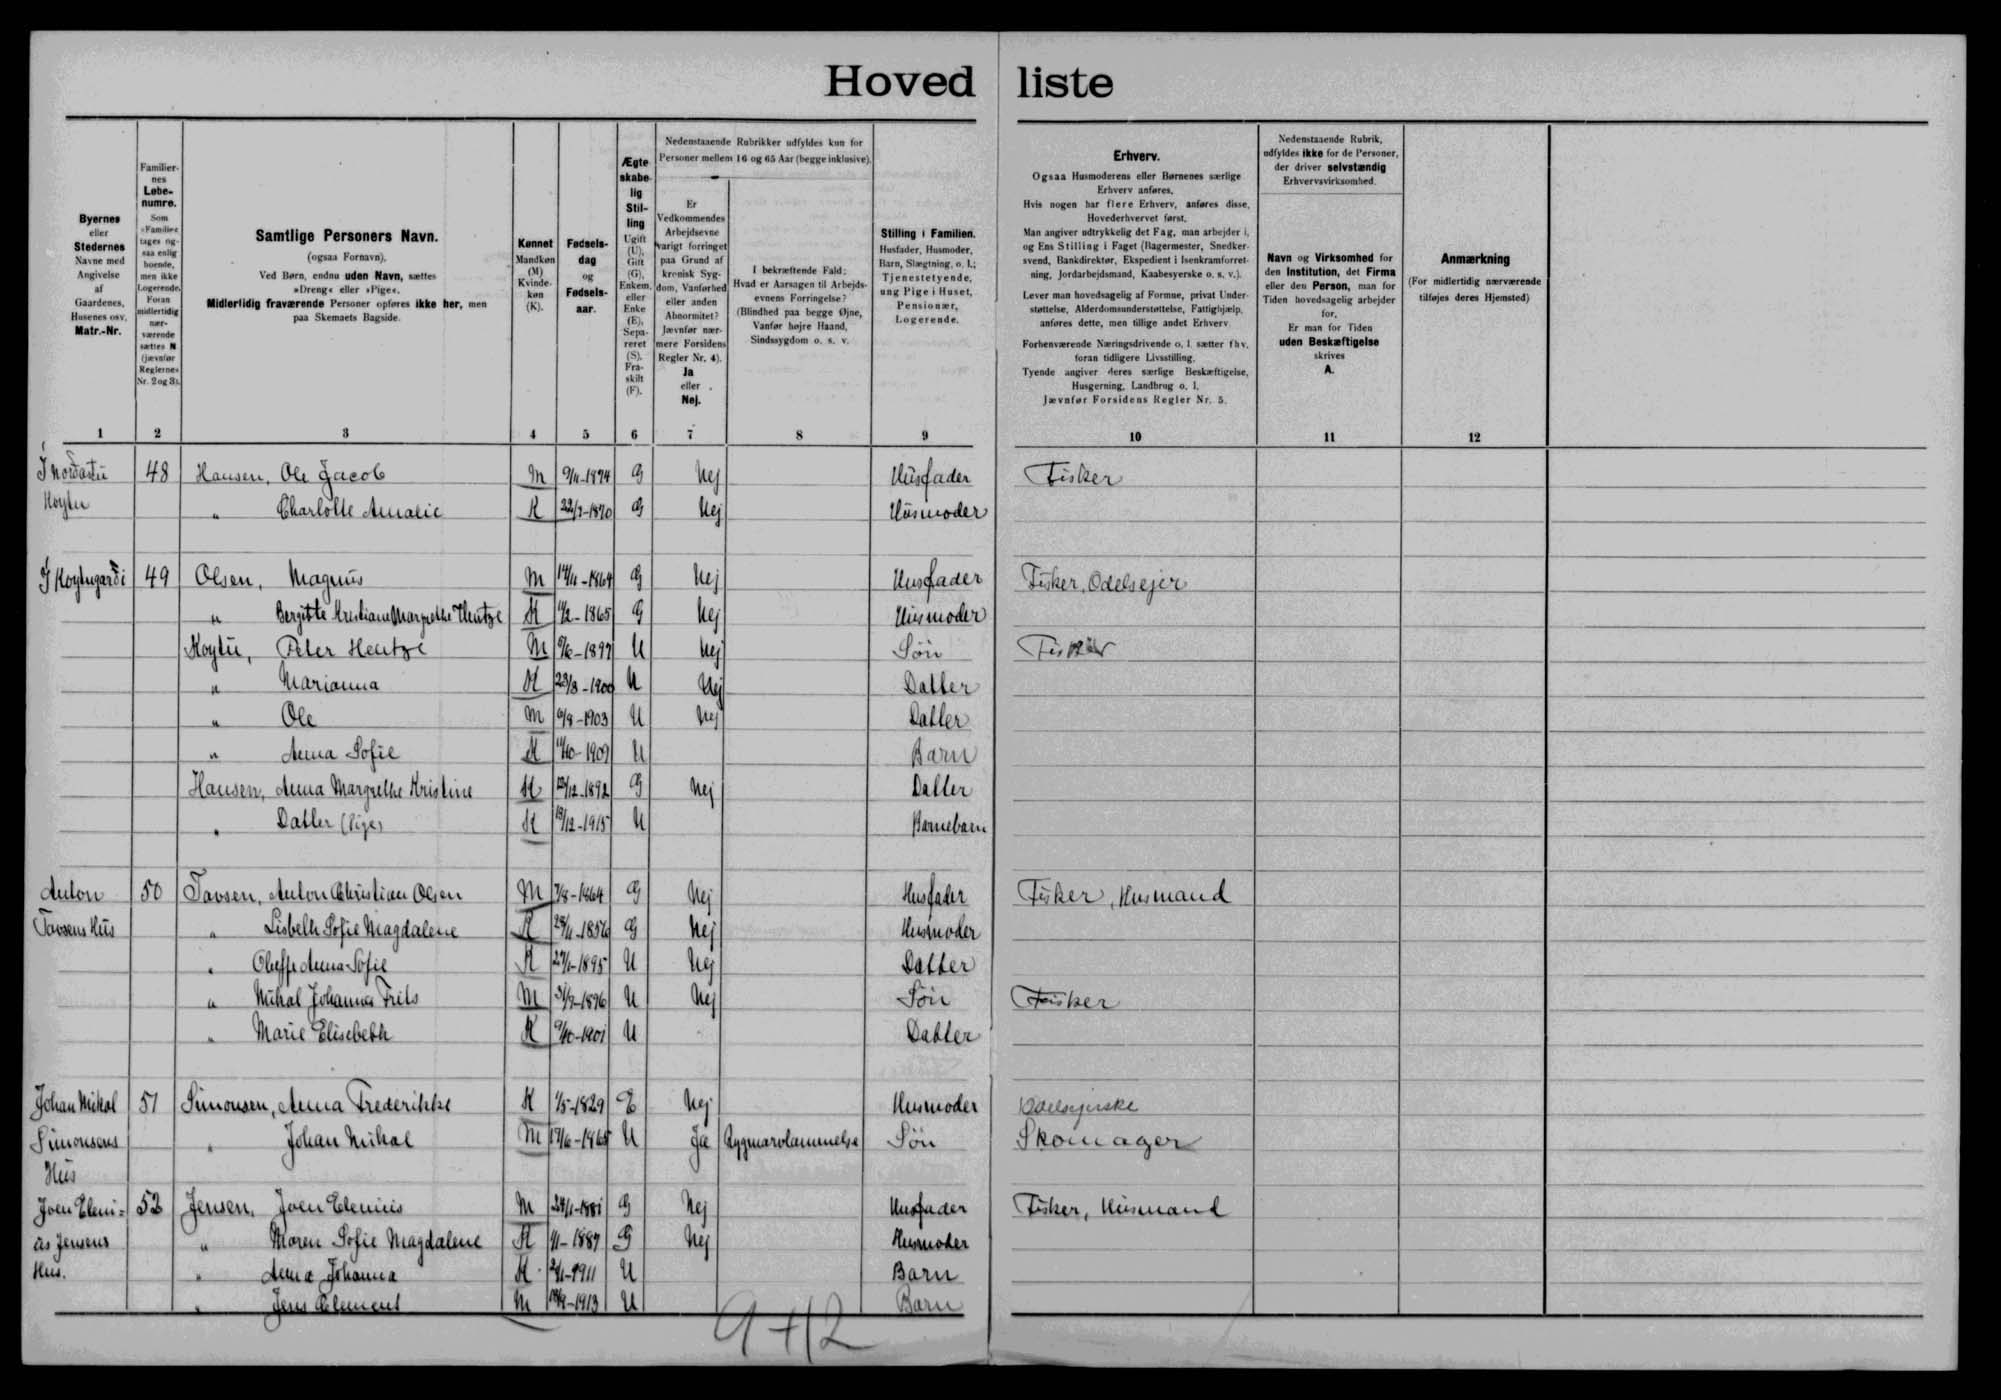 Hovedliste
Byernes eller Stedernes Navne med Angivelse af Gaardenes, Husenes osv. Matr.-Nr.
Familiernes Løbenumre. Som »Familie« tages ogsaa enlig boende, men ikke Logerende. Foran midlertidig nærværende sættes N (jævnfør Reglernes Nr. 2 og 3).
Samtlige Personers Navn. (ogsaa Fornavn). Ved Børn, endnu uden Navn, sættes »Dreng« eller »Pige«. Midlertidig fraværende Personer opføres ikke her, men paa Skemaets Bagside.
Kønnet Mandkøn (M) Kvindekøn (K).
Fødselsdag og Fødselsaar.
Ægteskabelig Stilling Ugift (U), Gift (G), Enkem. eller Enke (E), Separeret (S), Fraskilt (F).
Nedenstaaende Rubrikker udfyldes kun for Personer mellem 16 og 65 Aar (begge inklusive).
Er Vedkommendes Arbejdsevne varigt forringet paa Grund af kronisk Sygdom, Vanførhed eller anden Abnormitet? Jævnfør nærmere Forsidens Regler Nr. 4). Ja eller Nej.
I bekræftende Fald: Hvad er Aarsagen til Arbejdsevnens Forringelse? (Blindhed paa begge Øjne, Vanfør højre Haand, Sindssygdom o. s. v.
Stilling i Familien. Husfader, Husmoder, Barn, Slægtning, o. l.; Tjenestetyende, ung Pige i Huset, Pensionær, Logerende.
Erhverv. Ogsaa Husmoderens eller Børnenes særlige Erhverv anføres. Hvis nogen har flere Erhverv, anføres disse, Hovederhvervet først. Man angiver udtrykkelig det Fag, man arbejder i, og Ens Stilling i Faget (Bagermester, Snedkersvend, Bankdirektør, Ekspedient i Isenkramforretning, Jordarbejdsmand, Kaabesyerske o. s. v.). Lever man hovedsagelig af Formue, privat Understøttelse, Alderdomsunderstøttelse, Fattighjælp, anføres dette, men tillige andet Erhverv. Forhenværende Næringsdrivende o. l. sætter fhv. foran tidligere Livsstilling. Tyende angiver deres særlige Beskæftigelse, Husgerning, Landbrug o. l. Jævnfør Forsidens Regler Nr. 5.
Nedenstaaende Rubrik, udfyldes ikke for de Personer, der driver selvstændig Erhvervsvirksomhed.
Navn og Virksomhed for den Institution, det Firma eller den Person, man for Tiden hovedsagelig arbejder for. Er man for Tiden uden Beskæftigelse skrives A.
Anmærkning (For midlertidig nærværende tilføjes deres Hjemsted)
1 2 3 4 5 6 7 8 9 10 11 12
48 Hansen, Ole Jacob M 9/11-1874 G Nej Husfader Fisker
" Charlotte Amalie K 22/7-1870 G Nej Husmoder
49 Olsen, Magnus M 14/11-1864 G Nej Husfader Fisker, Odelsejer
" Bergitte Kristiane Margrethe Hentze K 11/2-1865 G Nej Husmoder
Koytu, Peter Hentze M 9/6-1897 U Nej Søn Fisker
" Marianna K 23/3-1900 U Nej Datter
" Ole M 6/8-1903 U Nej Datter
" Anna Sofie K 11/10-1909 U Barn
Hansen, Anna Margrethe Kristine K 12/12-1892 G Nej Datter
" Datter (Pige) K 13/12-1915 U Barnebarn
Anton 50 Tavsen, Anton Christian Olsen M 7/8-1864 G Nej Husfader Fisker, Husmand
Tavsens Hus " Lisbeth Sofie Magdalene K 28/11-1856 G Nej Husmoder
" Anna Sofie K 27/1-1895 U Nej Datter
" Mikal Johannes Frits M 31/7-1896 U Nej Søn Fisker
" Marie Elisebeth K 9/10-1901 U Datter
Johan Mikal 51 Simonsen, Anna Frederikke K 1/5-1829 E Nej Husmoder Odelsejerske
Simonsens " Johan Mikal M 17/6-1865 U Ja Rygmarvlammelse Søn Skomager
Hus
Joen Eleni= 52 Jensen, Joen Elenius M 24/1-1881 G Nej Husfader Fisker, Husmand
us Jensens " Maren Sofie Magdalene K 1/1-1887 G Nej Husmoder
Hus. " Anna Johanna K 2/1-1911 U Barn
" Jens Clement M 18/9-1913 U Barn
9+12